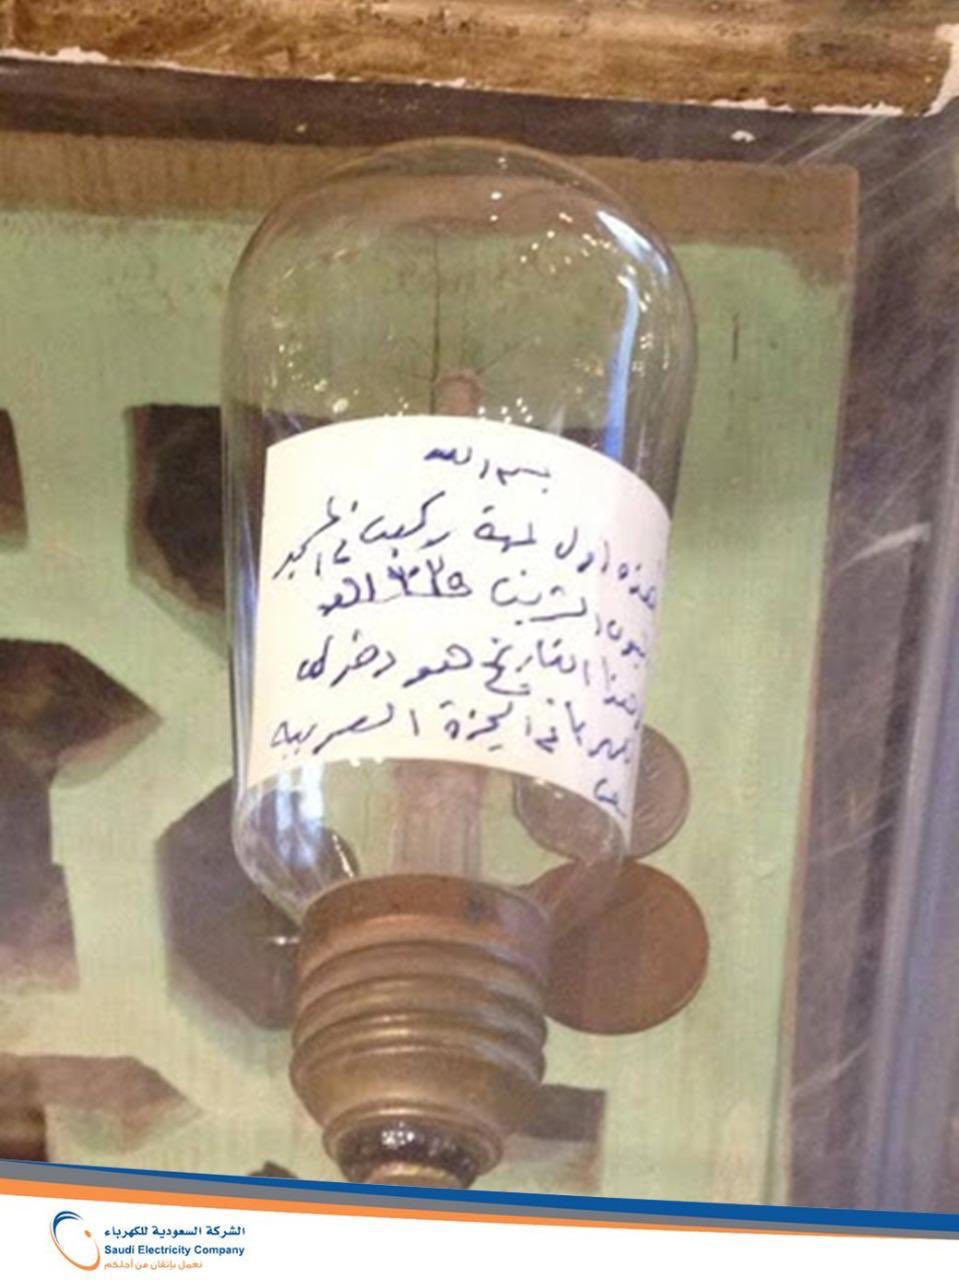 بسم الله
هذه اول لمبة ركبت في الحر
النبوي الشريف ١٣٢٥هـ
وهذا التاريخ هو دخول
الكهرباء في الجزيرة العربية
الشركة السعودية للكهرباء
Saudi Electricity Company
نعمل بإتقان من أجلكم